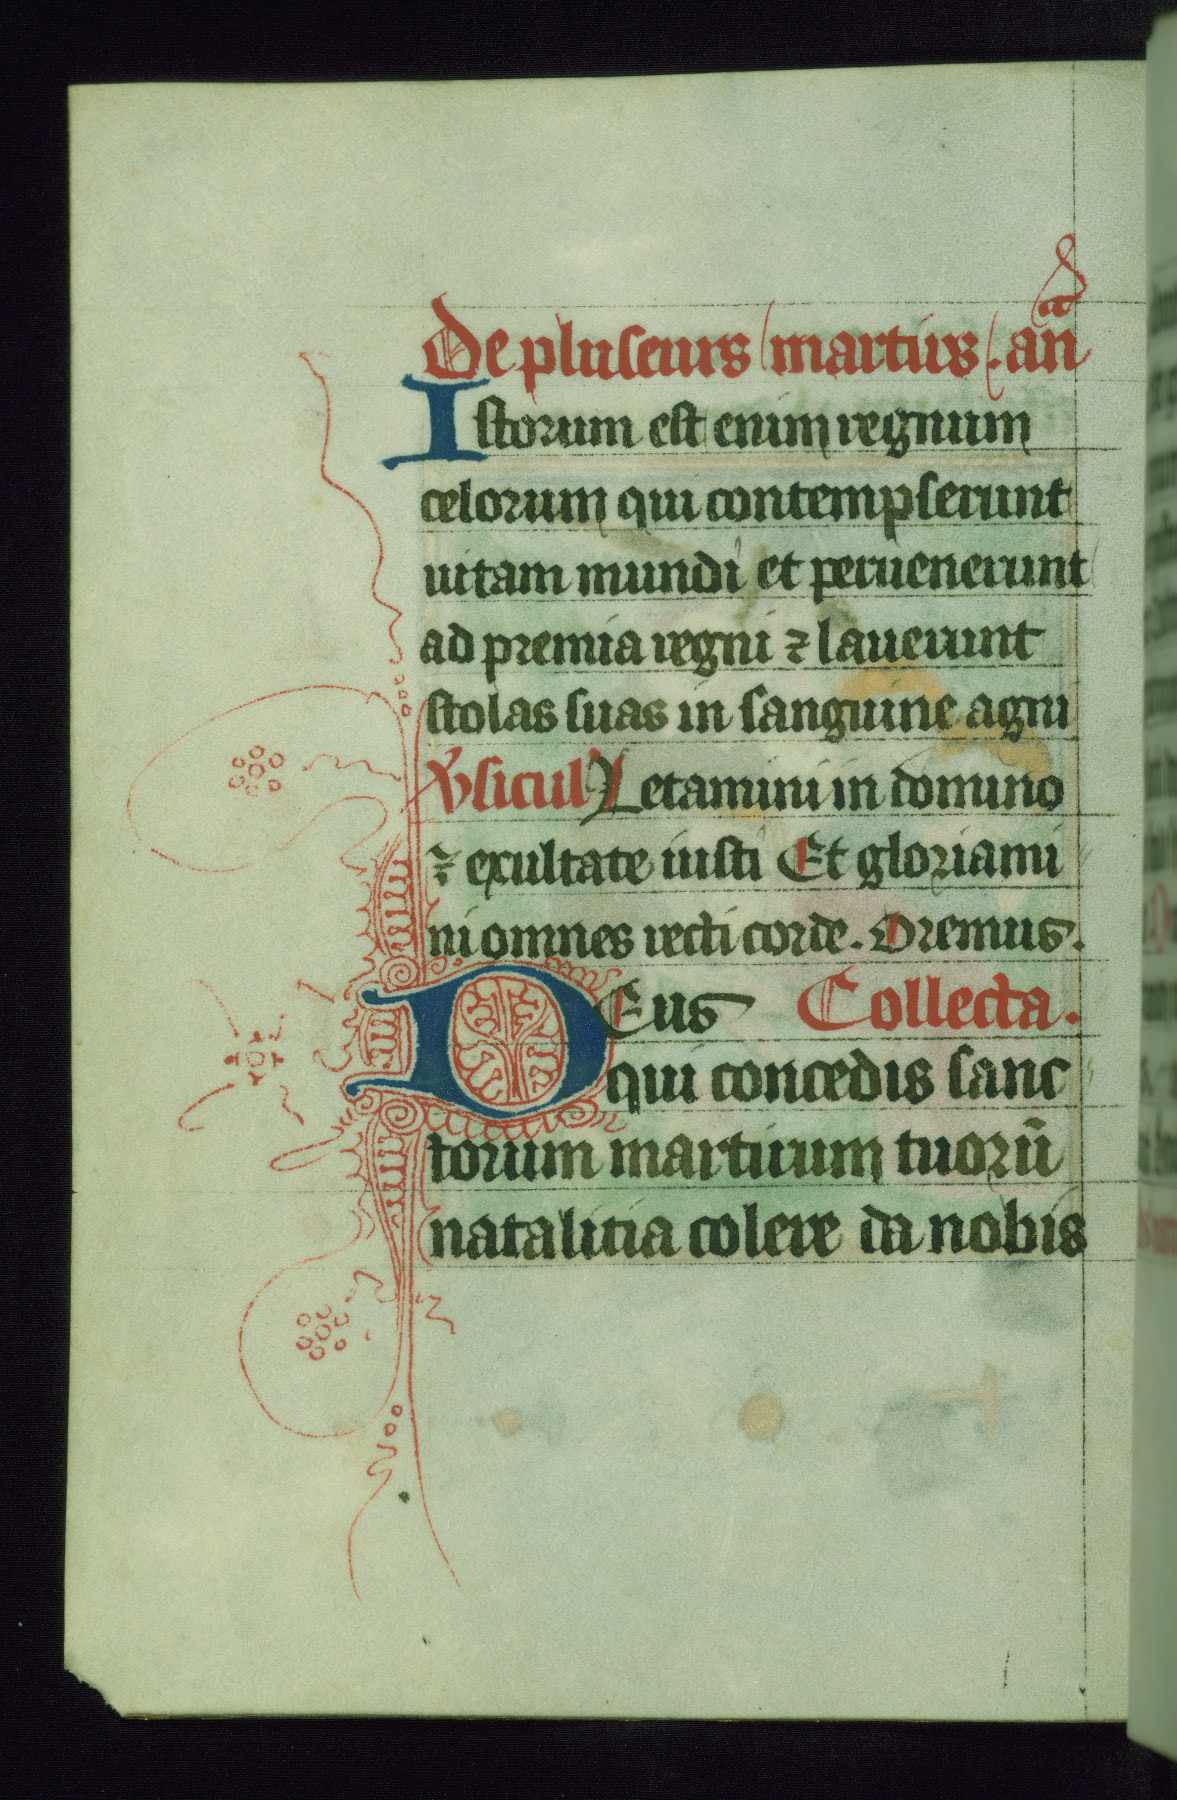 De pluseurs martirs. añ
Istorum est enim regnum
celorum qui contempserunt
uitam mundi et peruenerunt
ad premia regni ⁊ lauerunt
stolas suas in sanguine agni
v̓sicul' Letamini in domino
⁊ exultate iusti Et gloriami
ni omnes recti corde. Oremus.
Deus Collecta.
qui concedis sanc
torum martirum tuorū
natalitia colere da nobis